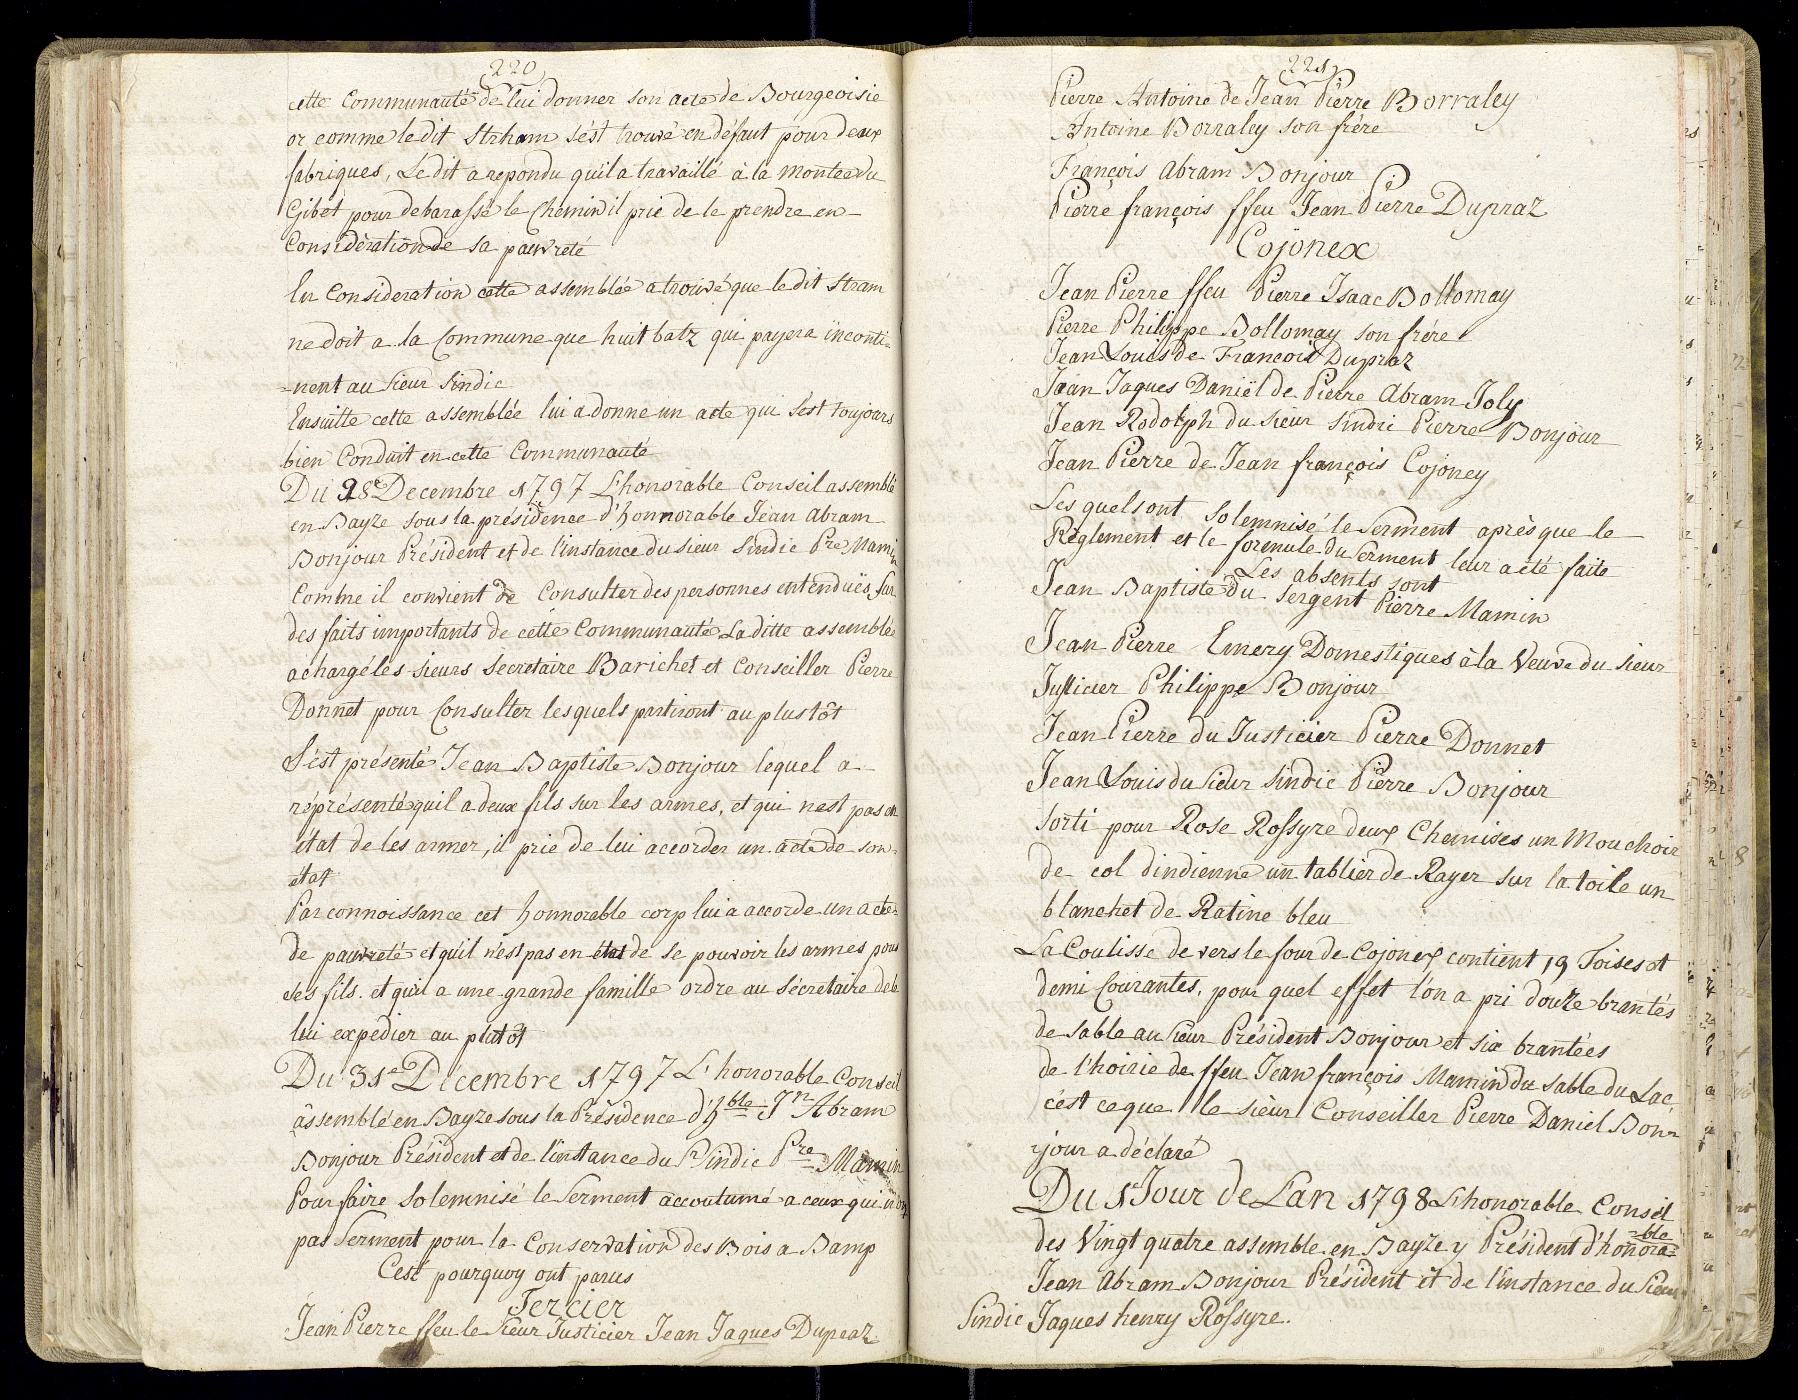 220
cette Communauté de lui donner son acte de Bourgeoisie
or comme le dit Strham s'est trouvé en défaut pour deux
fabriques, Le dit a repondu qu'il a travaillé à la Montée du
Gibet pour debarassé le Chemin il prie de le prendre en
Considération de sa pauvreté
En Consideration cette assemblée a trouvé que le dit Stram
ne doit a la Commune que huit batz qui payera inconti=
=nent au Sieur Sindic
Ensuitte cette assemblée lui a donne un acte qui s'est toujours
bien Conduit en cette Communauté
Du 28e Decembre 1797 L'honorable Conseil assemblé
en Bayze sous la présidence d'honnorable Jean Abram
Bonjour Président et de l'instance du sieur Sindic Pre Mamin
Comme il convient de Consulter des personnes entenduës sur
des faits importants de cette Communauté La ditte assemblée
a chargé lés sieurs Secretaire Barichet et Conseiller Pierre
Donnet pour Consulter lesquels partiront au plustôt
S'est présenté Jean Baptiste Bonjour lequel a
réprésenté quil a deux fils sur les armes, et qui nest pas en
état de les armer, il prie de lui accorder un acte de son
etat
Par connoissance cet honnorable corp lui a accorde un acte
de pauvreté et qu'il n'est pas en état de se pouvoir les armes pour
ses fils. et qu'il a une grande famille ordre au Sécretaire de le
lui expedier au plutôt
Du 31e Décembre 1797 L'honorable Conseil
assemblé en Bayze sous la Présidence d'hble Jn Abram
Bonjour Président et de l'instance du Sr Sindic Pre Mamin
Pour faire Solemnisé le Serment accoutumé a ceux qui n'ont
pas Serment pour la Conservation des Bois a Bamp
C'est pourquoy ont parus
Tercier
Jean Pierre ffeu le Sieur Justicier Jean Jaques Dupraz
221
Pierre Antoine de Jean Pierre Borraley
Antoine Borraley son frére
François Abram Bonjour
Pierre françois ffeu Jean Pierre Dupraz
Cojonex
Jean Pierre ffeu Pierre Isaac Bollomay
Pierre Philippe Bollomay son frére
Jean Louis de Francois Dupraz
Jean Jaques Daniël de Pierre Abram Joly
Jean Rodolph du sieur Sindic Pierre Bonjour
Jean Pierre de Jean françois Cojoney
Les quel sont Solemnisé le Serment après que le
Règlement et le formule du Serment leur a été faite
Les absents sont
Jean Baptiste du Sergent Pierre Mamin
Jean Pierre Emery Domestiques à la Veuve du Sieur
Justicier Philippe Bonjour
Jean Pierre du Justicier Pierre Donnet
Jean Louis du Sieur Sindic Pierre Bonjour
Sorti pour Rose Rossyre deux Chemises un Mouchoir
de col dindienne un tablier de Rayer sur la toile un
blanchet de Ratine bleu
La Coulisse de vers le four de Cojonex contient 19 Toises et
demi Courantes, pour quel effet l'on a pri douze brantés
de sable au Sieur Président Bonjour et six brantées
de l'hoirie de ffeu Jean françois Mamin du sable du Lac
c'est ce que le sieur Conseiller Pierre Daniel Bon=
=jour a déclaré
Du 1e Jour de Lan 1798 L'honorable Conseil
des Vingt quatre assemble en Bayze y Président d'honora=
=ble
Jean Abram Bonjour Président et de l'instance du Sieur
Sindic Jaques henry Rossyre.